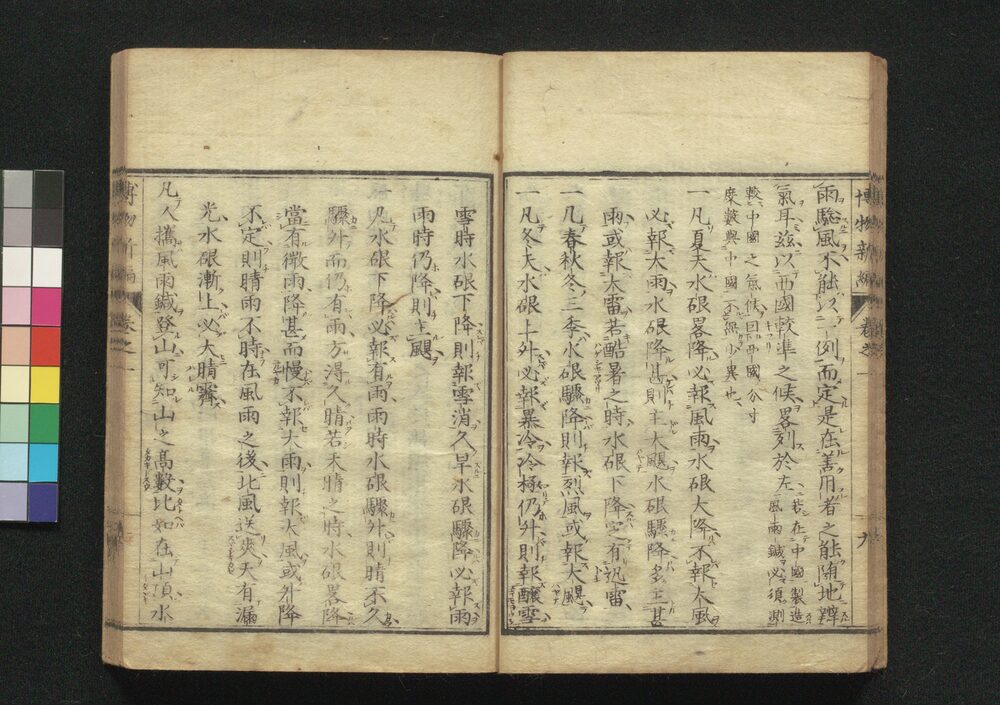 博物新編 卷之一 九
雨驗風不能以一例而定是在善用者之能隨地辨
氣耳茲以西國較準之候畧列於左
若在中國製造
風雨鍼必須測
較中國之氣候因西國分寸
麋數與中國不無少異也
一凡夏天水硍畧降必報風雨水硍大降不報大風
必報大雨水硍降甚則主大颶水硍驟降多主甚
雨或報大雷若酷暑之時水硍下降定有迅雷
一凡春秋冬三季水硍驟降則報烈風或報大颶
一凡冬天水硍上升必報暴冷冷極仍升則報釀雪
雪時水硍下降則報雪消久旱水硍驟降必報雨
雨時仍降則主颶
凡水硍下降必報有雨雨時水硍驟升則晴不久
驟升而仍有雨方得久晴若天晴之時水硍畧降
當有微雨降甚而慢不報大雨則報大風或升降
不定則晴雨不時在風雨之後北風送爽天有漏
光水硍漸上必大晴霽
凡人攜風雨鍼登山可知山之高數比如在山頂水